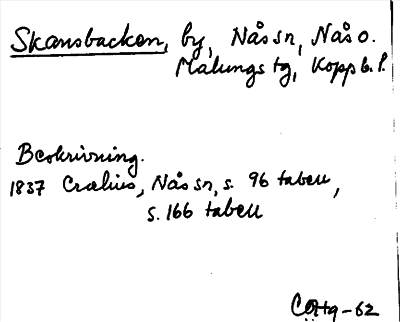 Skansbacken, by, Nås sn, Nås o.
Malungs tg, Kopp b. l.
Beskrivning.
1837 Crælius, Nås sn, s. 96 tabell,
s. 166 tabell
-62